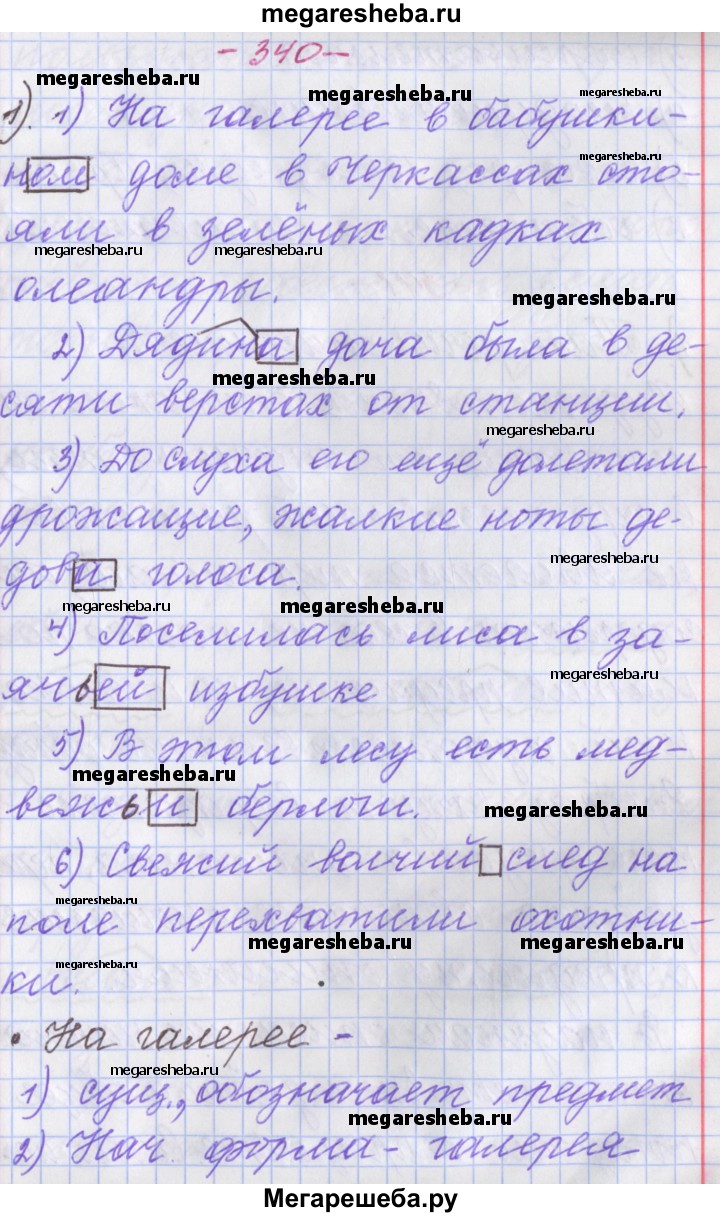 megaresheba.ru
- 340 -
megaresheba.ru
megaresheba.ru
megaresheba.ru
1). 1) На галерее в бабушки-
megaresheba.ru
ном доме в Черкассах сто-
яли в зелёных кадках
megaresheba.ru
megaresheba.ru
олеандры.
megaresheba.ru
2) Дядина дача была в де-
megaresheba.ru
сяти верстах от станции.
megaresheba.ru
3) До слуха его ещё долетали
дрожащие, жалкие ноты де-
megaresheba.ru
дова голоса.
megaresheba.ru
megaresheba.ru
4) Поселилась лиса в за-
megaresheba.ru
ячьей избушке
5) В этом лесу есть мед-
megaresheba.ru
вежьи берлоги.
megaresheba.ru
6) Свежий волчий след на
megaresheba.ru
поле перехватили охотни-
megaresheba.ru
megaresheba.ru
megaresheba.ru
ки.
• На галерее -
megaresheba.ru
1) сущ., обозначает предмет
megaresheba.ru
2) Нач форма - галерея
Мегарешеба.ру